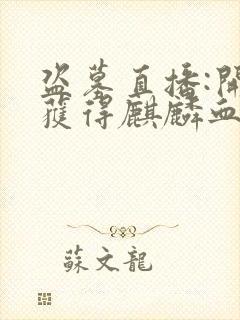 盜墓直播:開
獲得麒麟血
蘇文龍